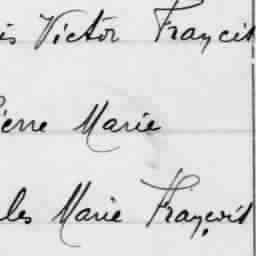 is Victor Francis
ierre Marie
les Marie François